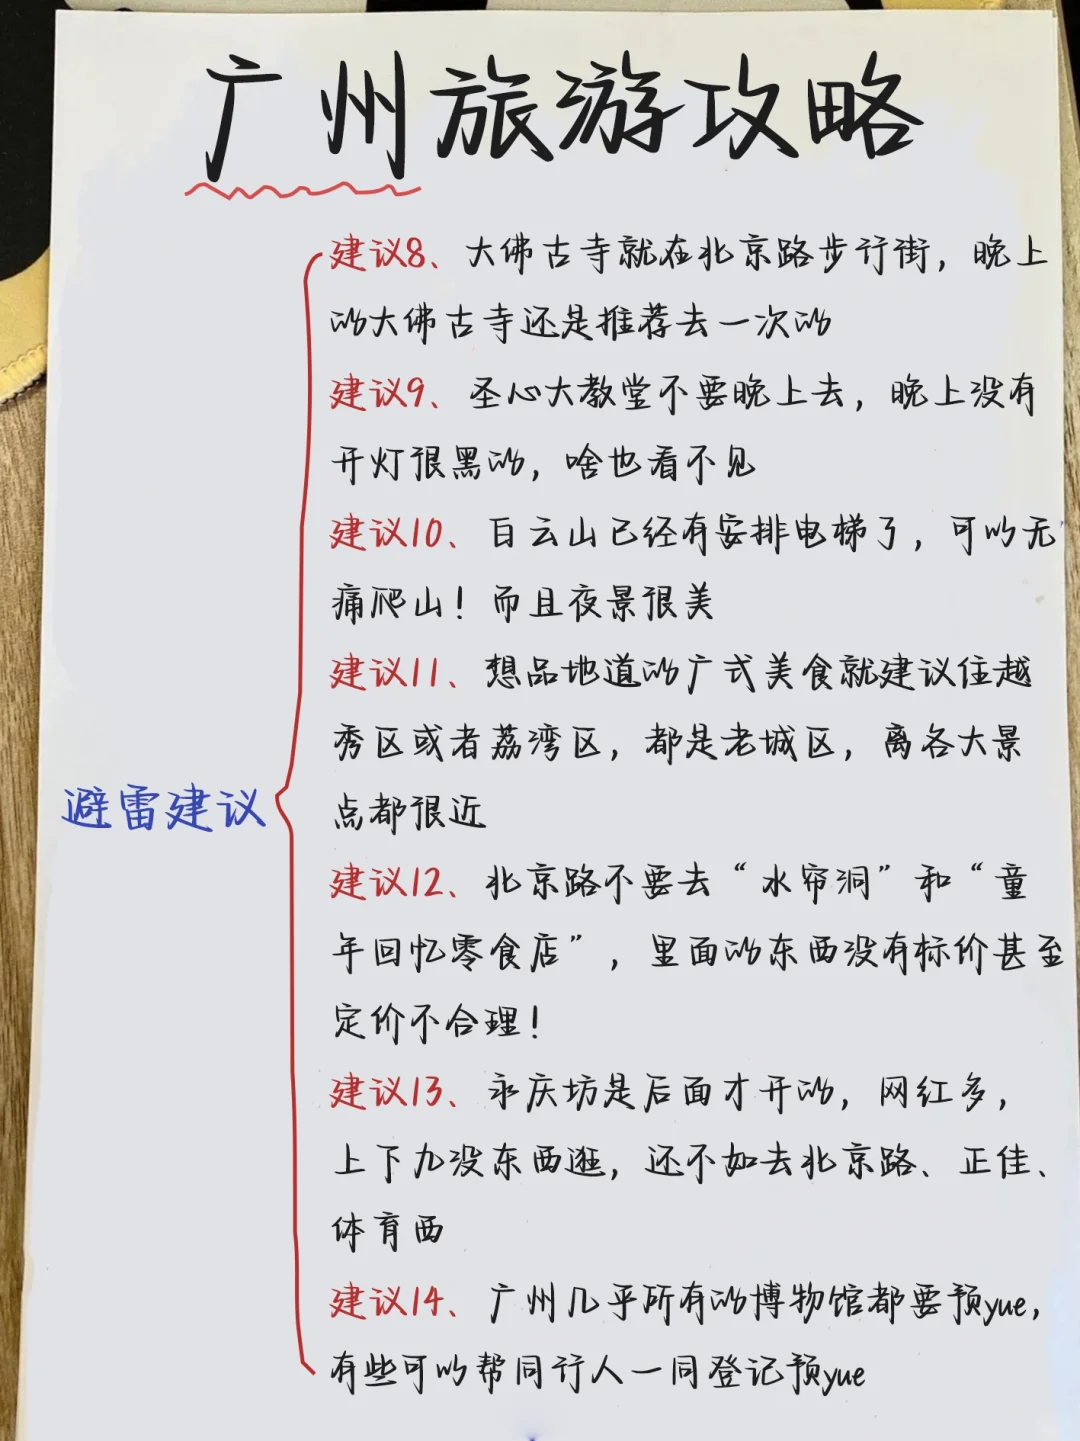 广州旅游攻略
建议8、大佛古寺就在北京路步行街，晚上
的大佛古寺还是推荐去一次的
建议9、圣心大教堂不要晚上去，晚上没有
开灯很黑的，啥也看不见
建议10、白云山已经有安排电梯了，可以无
痛爬山！而且夜景很美
建议11、想品地道的广式美食就建议住越
秀区或者荔湾区，都是老城区，离各大景
点都很近
避雷建议
建议12、北京路不要去“水帘洞”和“童
年回忆零食店”，里面的东西没有标价甚至
定价不合理！
建议13、永庆坊是后面才开的，网红多，
上下九没东西逛，还不如去北京路、正佳、
体育西
建议14、广州几乎所有的博物馆都要预yue，
有些可以帮同行人一同登记预yue